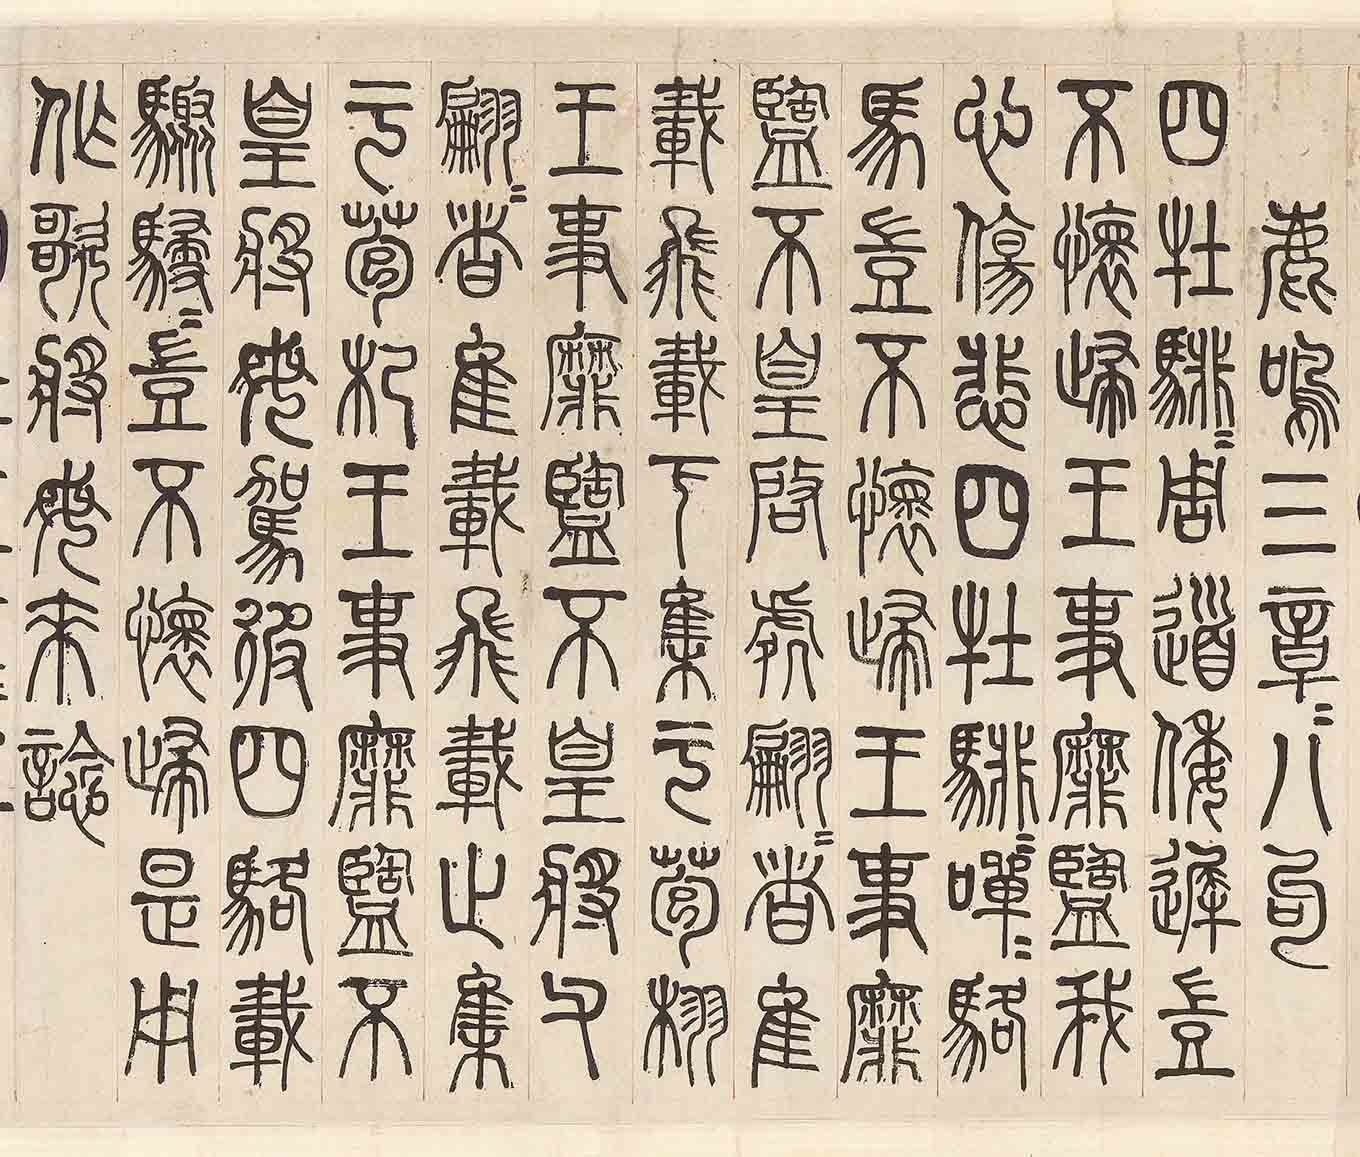 鹿鳴三章〻八句
四牡騑〻周道倭遲豈
不懷歸王事靡盬我
心傷悲四牡騑〻嘽〻駱
馬豈不懷歸王事靡
盬不皇啓處翩〻者隹
載飛載下集于苞栩
王事靡盬不皇將父
翩〻者隹載飛載止集
于苞杞王事靡盬不
皇將母駕彼四駱載
驟駸〻豈不懷歸是用
作歌將母來諗